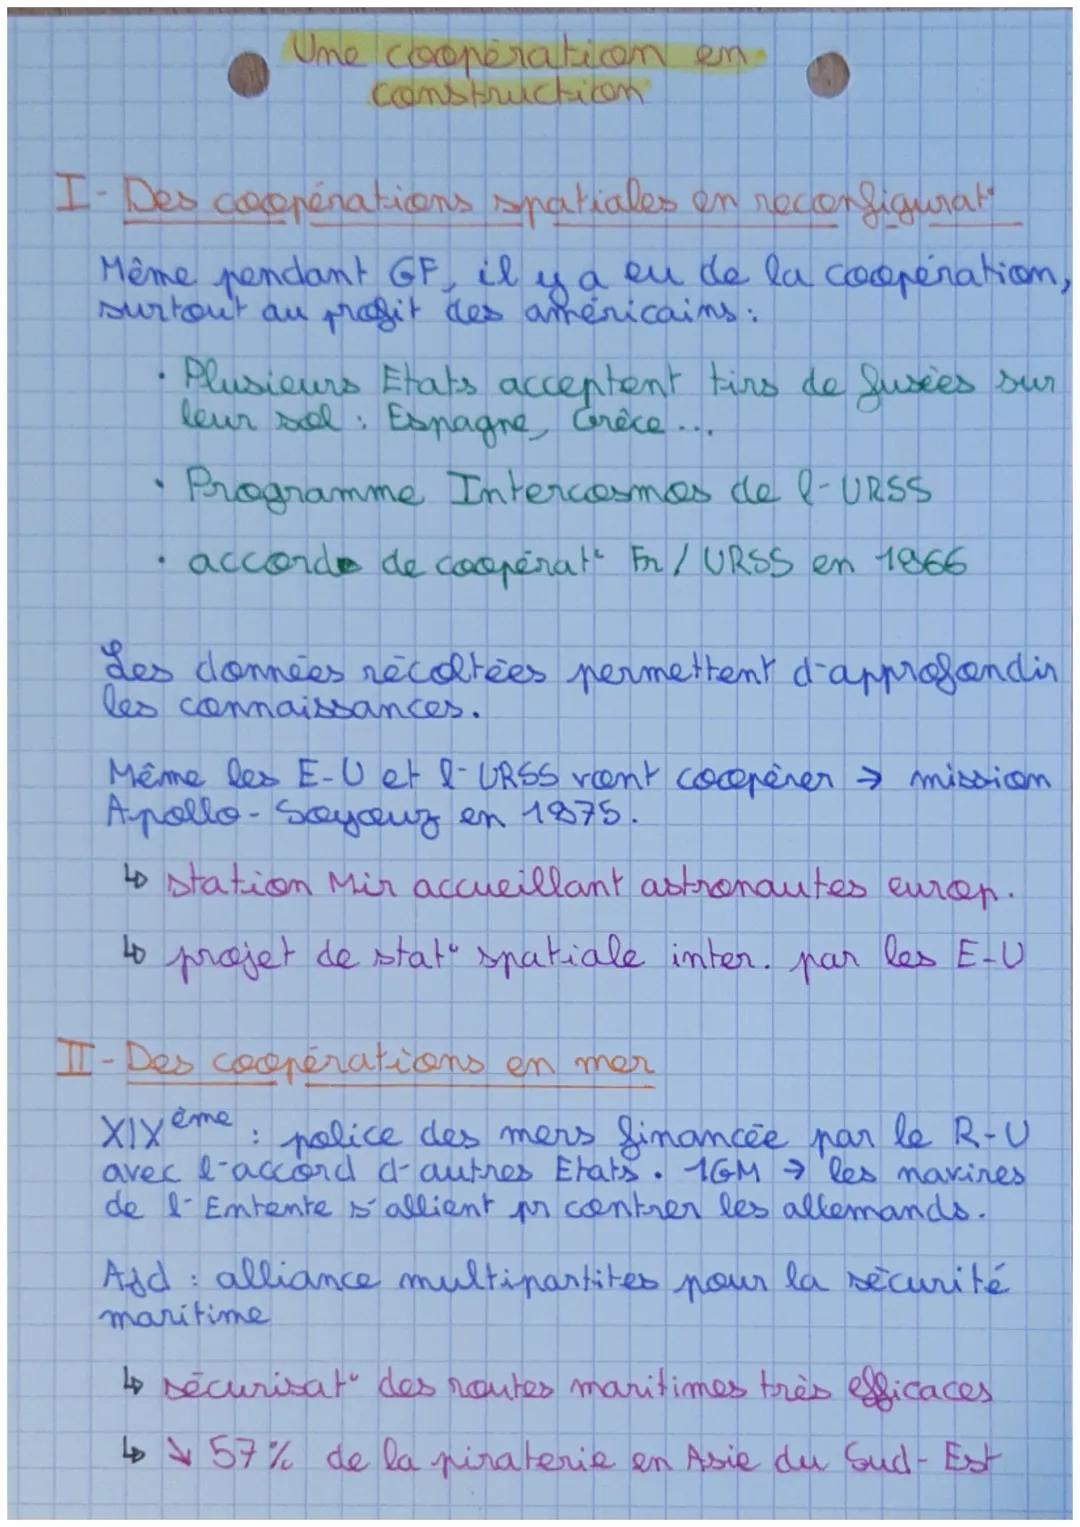 Une coopération en
construction
I - Des coopérations spatiales en reconfigurat°
Même pendant GF, il y a eu de la coopération,
surtout au profit des américains :
• Plusieurs Etats acceptent tirs de fusées sur
leur sol : Espagne, Grèce ...
• Programme Intercosmos de l'URSS
• accords de coopérat° Fr / URSS en 1966
Les données récoltées permettent d'approfondir
les connaissances.
Même les E-U et l'URSS vont coopérer → mission
Apollo - Soyouz en 1975.
↳ station Mir accueillant astronautes europ.
↳ projet de stat° spatiale inter. par les E-U
II - Des coopérations en mer
XIXème : police des mers financée par le R-U
avec l'accord d'autres Etats. 1GM → les navires
de l'Entente s'allient pr contrer les allemands.
Ajd : alliance multipartites pour la sécurité
maritime
↳ sécurisat° des routes maritimes très efficaces
↳ ↘ 57% de la piraterie en Asie du Sud-Est